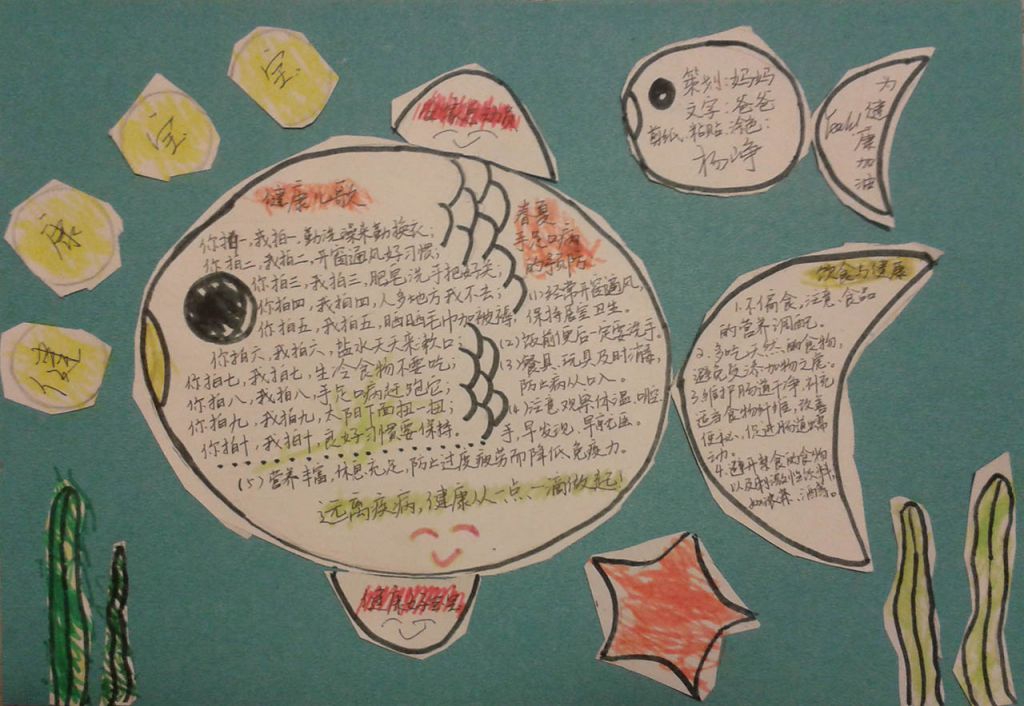 健
康
宝
宝
策划:妈妈
文字:爸爸
剪纸、粘贴、涂色:
杨峥
为健康加油
健康儿歌
你拍一,我拍一,勤洗澡来勤换衣;
你拍二,我拍二,开窗通风好习惯;
你拍三,我拍三,肥皂洗手把好关;
你拍四,我拍四,人多地方我不去;
你拍五,我拍五,晒晒毛巾加被褥;
你拍六,我拍六,盐水天天来漱口;
你拍七,我拍七,生冷食物不要吃;
你拍八,我拍八,手足口病赶跑它;
你拍九,我拍九,太阳下面扭一扭;
你拍十,我拍十,良好习惯要保持。
春夏
手足口病
的预防
(1)经常开窗通风,
保持居室卫生。
(2)饭前便后一定要洗手
(3)餐具、玩具及时消毒,
防止病从口入。
(4)注意观察体温、咽腔、
手,早发现、早就医。
(5)营养丰富,休息充足,防止过度疲劳而降低免疫力。
远离疾病,健康从一点一滴做起!
健康好宝宝
饮食与健康
1.不偏食,注意食品
的营养调配。
2.多吃天然的食物,
避免受添加物之虞。
3.维护肠道干净,补充
适当食物纤维,改善
便秘,促进肠道蠕
动。
4.避开禁食的食物
以及刺激性饮料,
如浓茶、酒等。